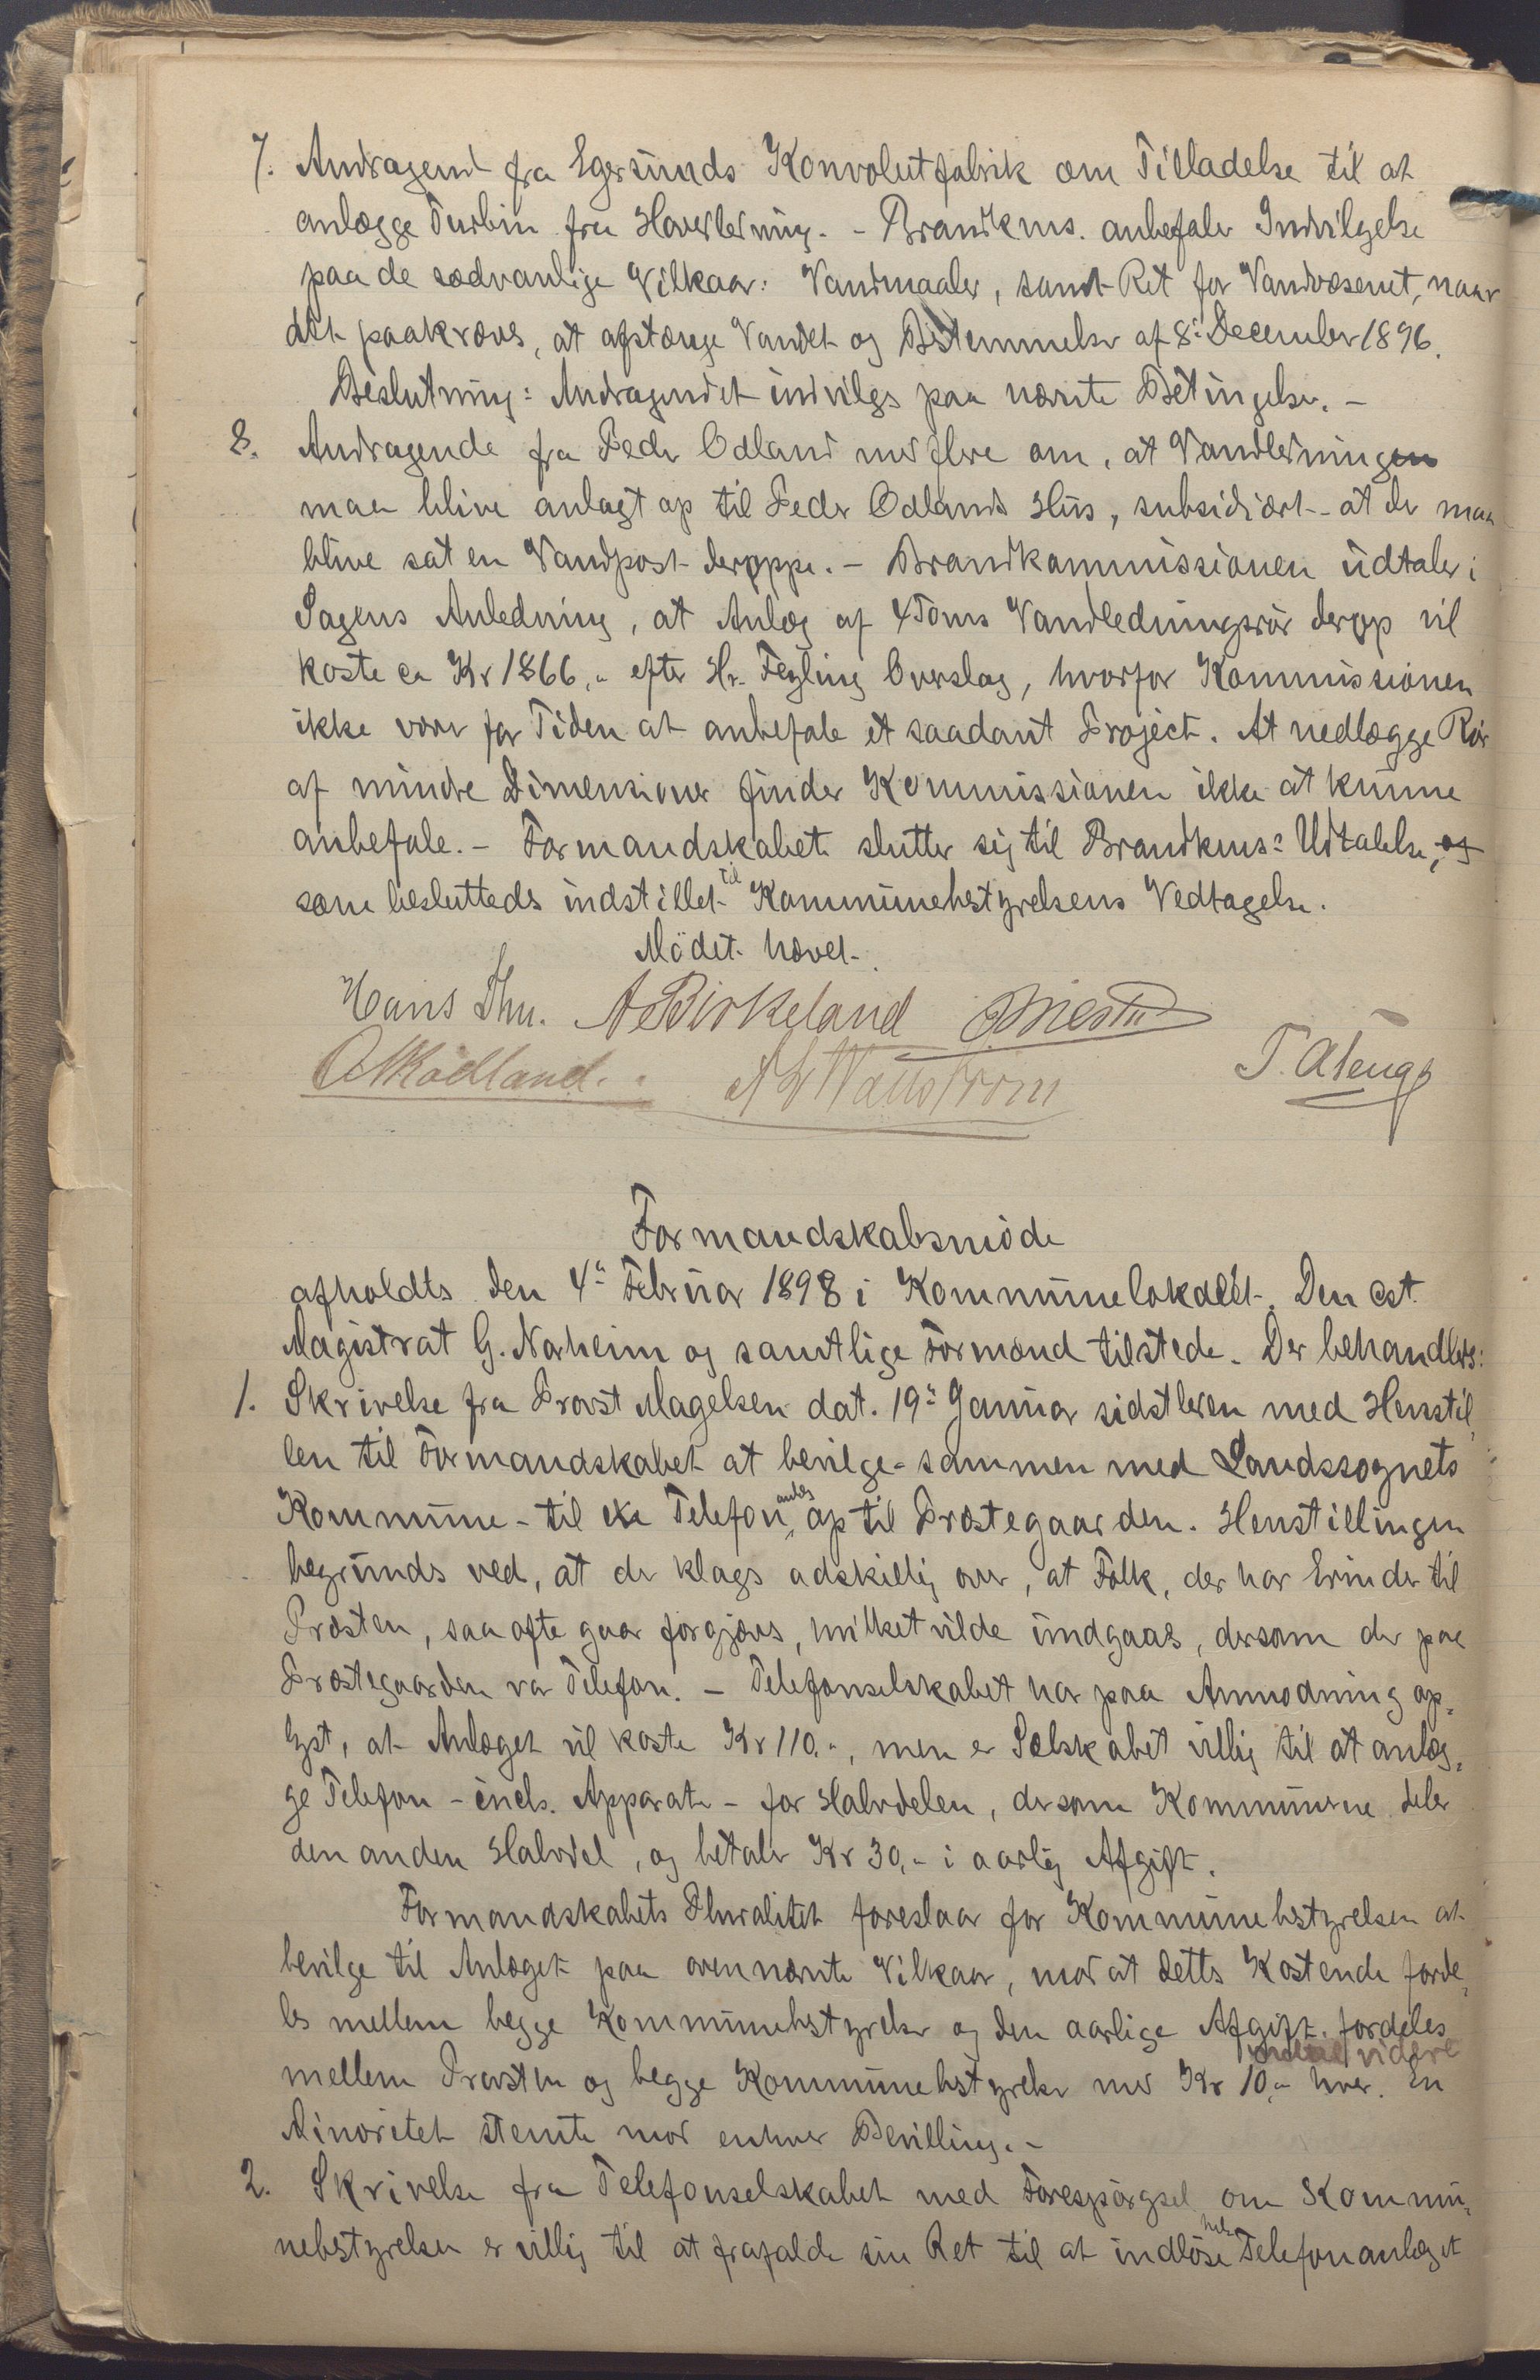 7. Andragend fra Egersunds Konvolutfabrik om Tilladelse til at
anlægge Turbin fra Hovedledning. - Brandkms. anbefaler Indvilgelse
paa de sædvanlige Vilkaar: Vandmaaler, samt Ret for Vandvæsenet, naar
det paakræves, at afstænge Vandet og Bestemmelser af 8de December 1896.
Beslutning: Andragendet indvilges paa nævnte Betingelser. -
8. Andragende fra Peder Odland med flere om, at Vandledningen
maa blive anlagt op til Peder Odlands Hus, subsidiært - at der maa
blive sat en Vandpost deroppe. - Brandkommissionen udtaler i
Sagens Anledning, at Anlæg af 4 Toms Vandledningsrör derop vil
koste ca Kr 1866,- efter Hr. Feyling Overslag, hvorfor Kommissionen
ikke vover for Tiden at anbefale et saadant Project. At nedlægge Rör
af mindre Dimensioner finder Kommissionen ikke at kunne
anbefale. - Formandskabet slutter sig til Brandkms: Udtalelse, og
som besluttedes indstillet til Kommunebestyrelsens Vedtagelse.
Mödet hævet.
Hans Thu. A Birkeland
O M Rödland. Wallström

Formandskabsmöde
afholdtes den 4de Februar 1898 i Kommunelokalet. Den cst.
Magistrat G. Norheim og samtlige Formænd tilstede. Der behandledes:
1. Skrivelse fra Provst Magelsen dat. 19de Januar sidstleden med Henstil-
len til Formandskabet at bevilge - sammen med Landssognets
Kommune - til Telefon anlæg op til Præstegaarden. Henstillingen
begrundes ved, at der klages adskillig over, at Folk, der har Erinder til
Præsten, saa ofte gaar forgjæves, hvilket vilde undgaaes, dersom der paa
Præstegaarden var Telefon. - Telefonselskabet har paa Anmodning op-
lyst, at Anlæget vil koste Kr 110.-, men er Selskabet villig til at anlæg-
ge Telefon - incls. Apparater - for Halvdelen, dersom Kommunerne deler
den anden Halvdel, og betaler Kr 30,- i aarlig Afgift.
Formandskabets Pluralitet foreslaar for Kommunebestyrelsen at
bevilge til Anlæget paa ovennævnte Vilkaar, mod at dettes Kostende forde-
les mellem begge Kommunebestyrelser og den aarlige Afgift fordeles
indtil videre
mellem Provsten og begge Kommunebestyrelser med Kr 10,- hver. En
Minoritet stemte mod enhver Bevilling. -
2. Skrivelse fra Telefonselskabet med Forespörgsel om Kommu-
nebestyrelsen er villig til at frafalde sin Ret til at indlöse Telefonanlæget